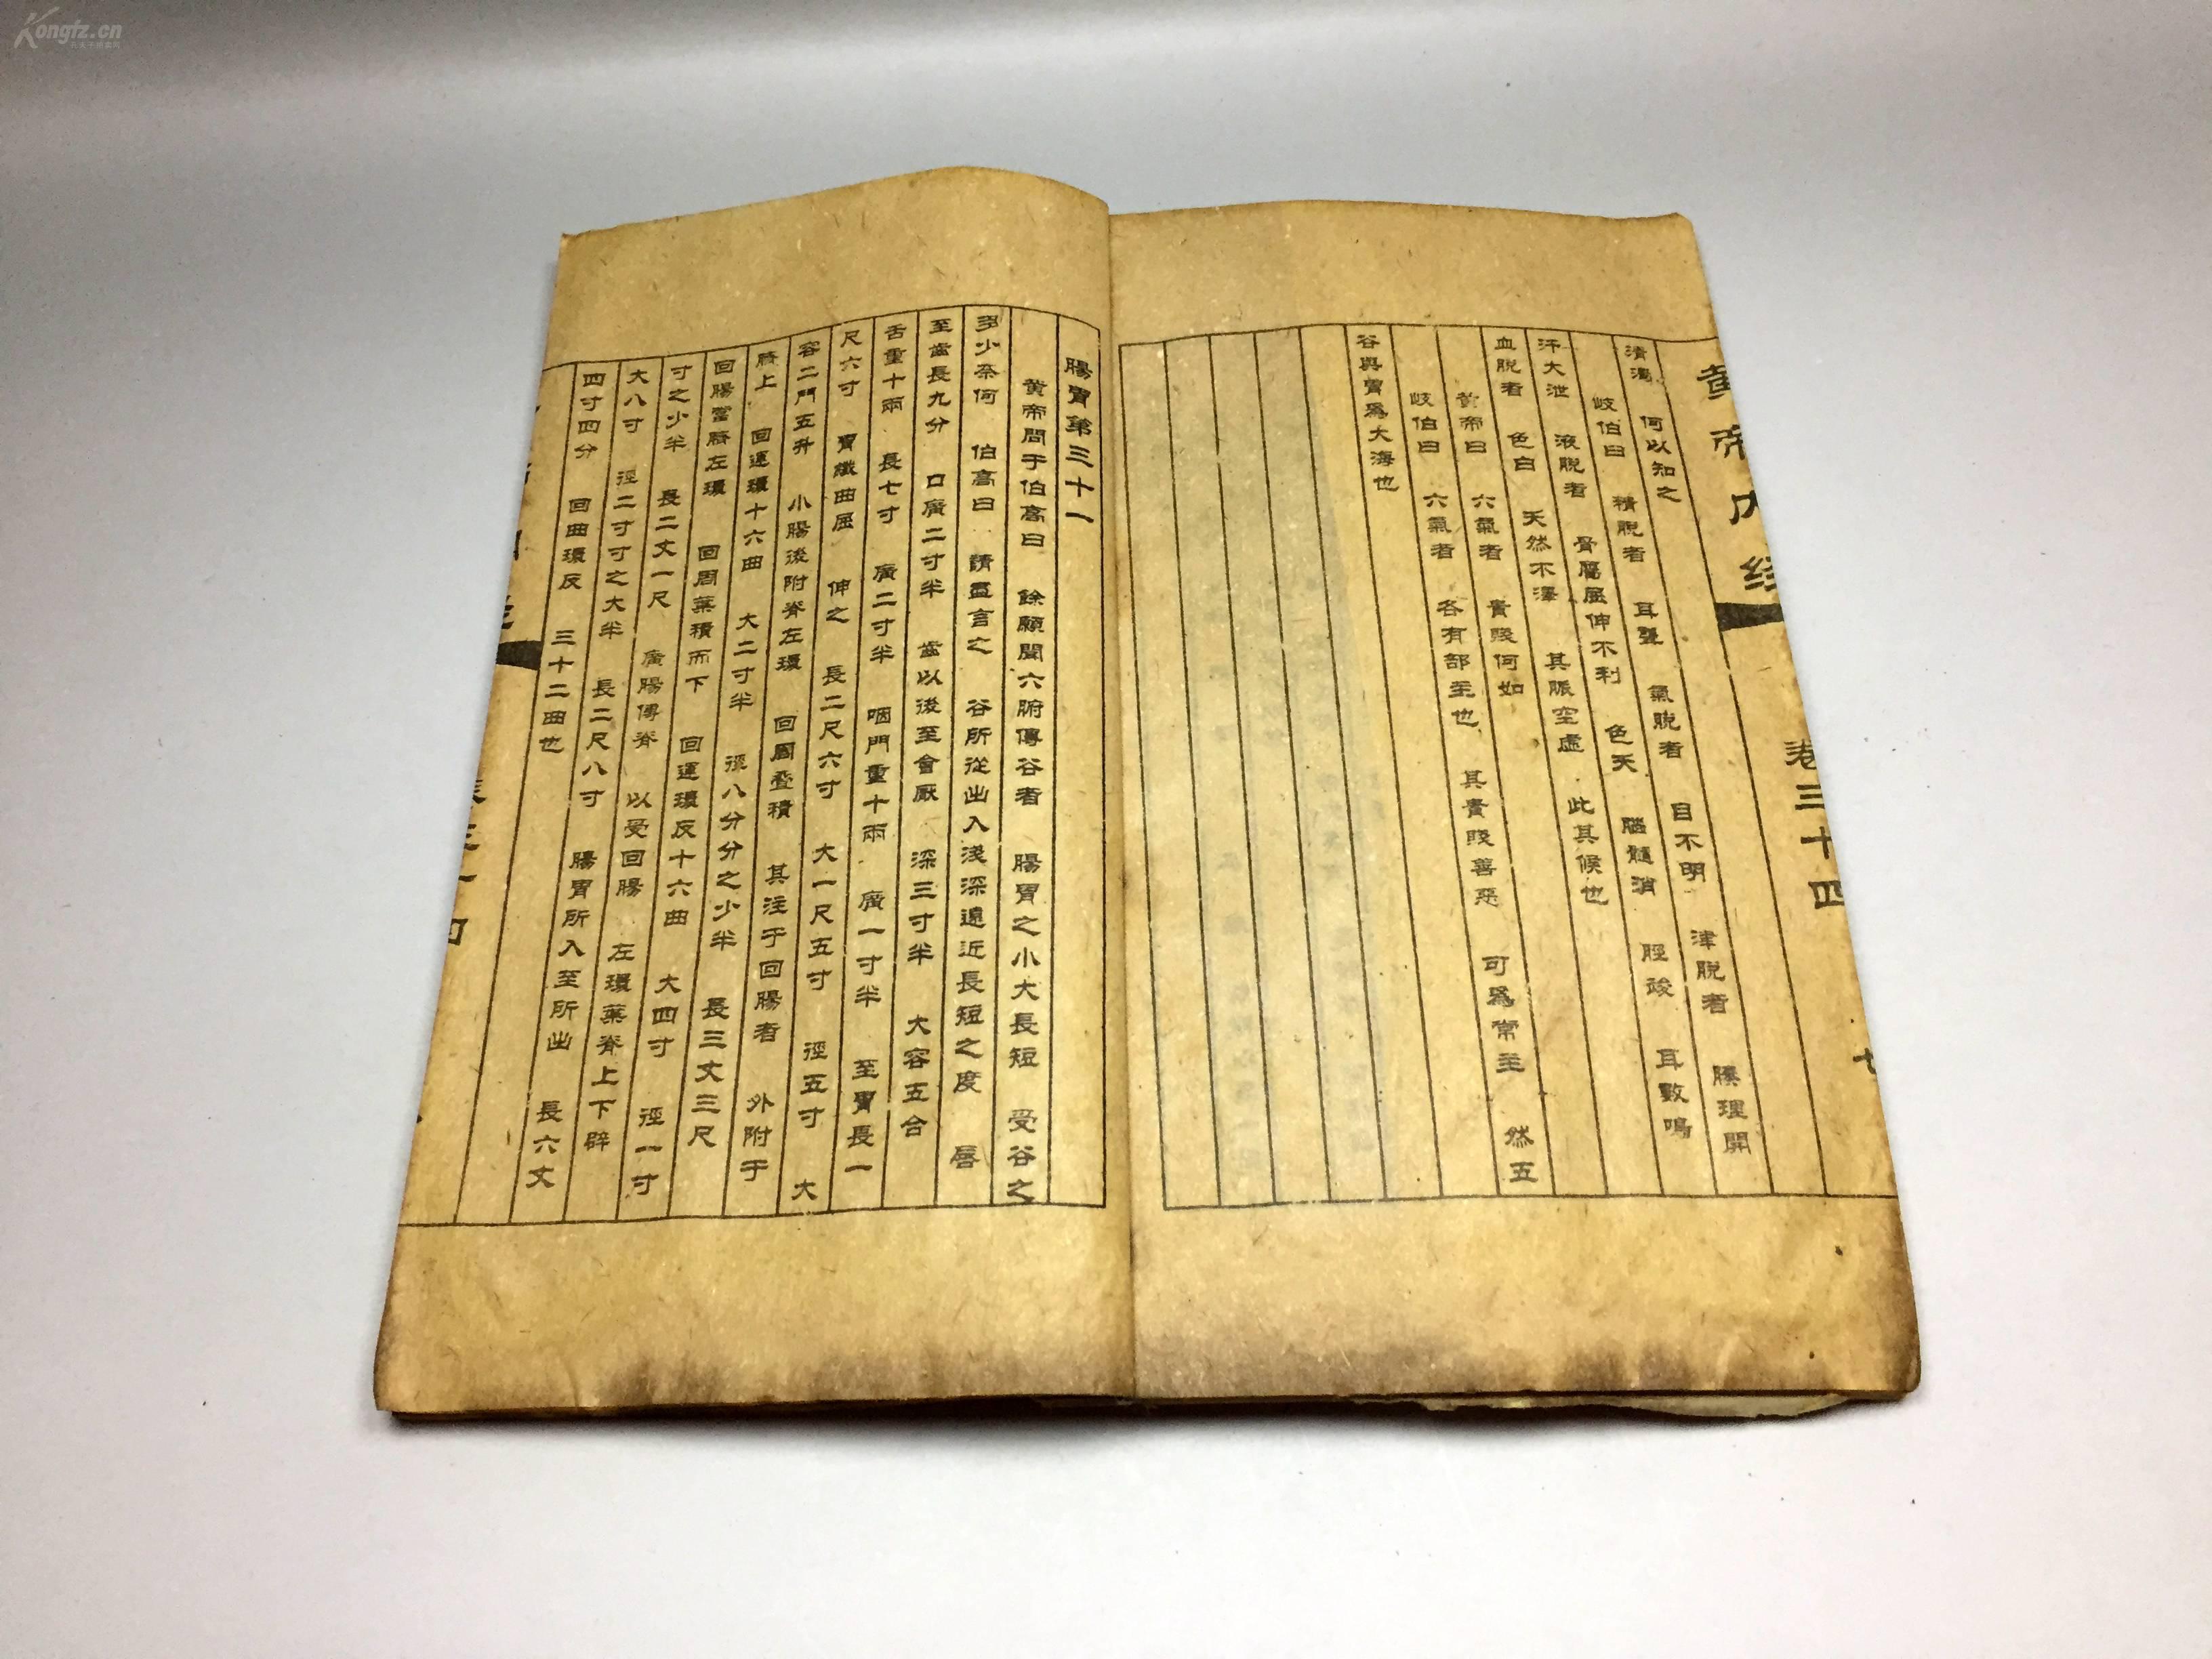 Kongfz.cn
黄帝内经
卷三十四
清濁 何以知之
岐伯曰 精脱者 耳聾 氣脱者 目不明 津脱者 腠理開
汗大泄 液脱者 骨屬屈伸不利 色天 腦髓消 脛𤺊 耳數鳴
血脱者 色白 天然不澤 其脈空虚 此其候也
黄帝曰 六氣者 貴賤何如
岐伯曰 六氣者 各有部主也 其貴賤善惡 可爲常主 然五
谷與胃爲大海也
腸胃第三十一
黄帝問于伯高曰 餘願聞六腑傳谷者 腸胃之小大長短 受谷之
多少奈何 伯高曰 請盡言之 谷所從出入淺深遠近長短之度 唇
至齒長九分 口廣二寸半 齒以後至會厭 深三寸半 大容五合
舌重十兩 長七寸 廣二寸半 咽門重十兩 廣一寸半 至胃長一
尺六寸 胃纖曲屈 伸之 長二尺六寸 大一尺五寸 徑五寸 大
容二鬥五升 小腸後附脊左環 回周疊積 其注于回腸者 外附于
臍上 回運環十六曲 大二寸半 徑八分分之少半 長三丈三尺
回腸當臍左環 回周葉積而下 回運環反十六曲 大四寸 徑一寸
寸之少半 長二丈一尺 廣腸傳脊 以受回腸 左環葉脊上下辟
大八寸 徑二寸寸之大半 長二尺八寸 腸胃所入至所出 長六丈
四寸四分 回曲環反 三十二曲也